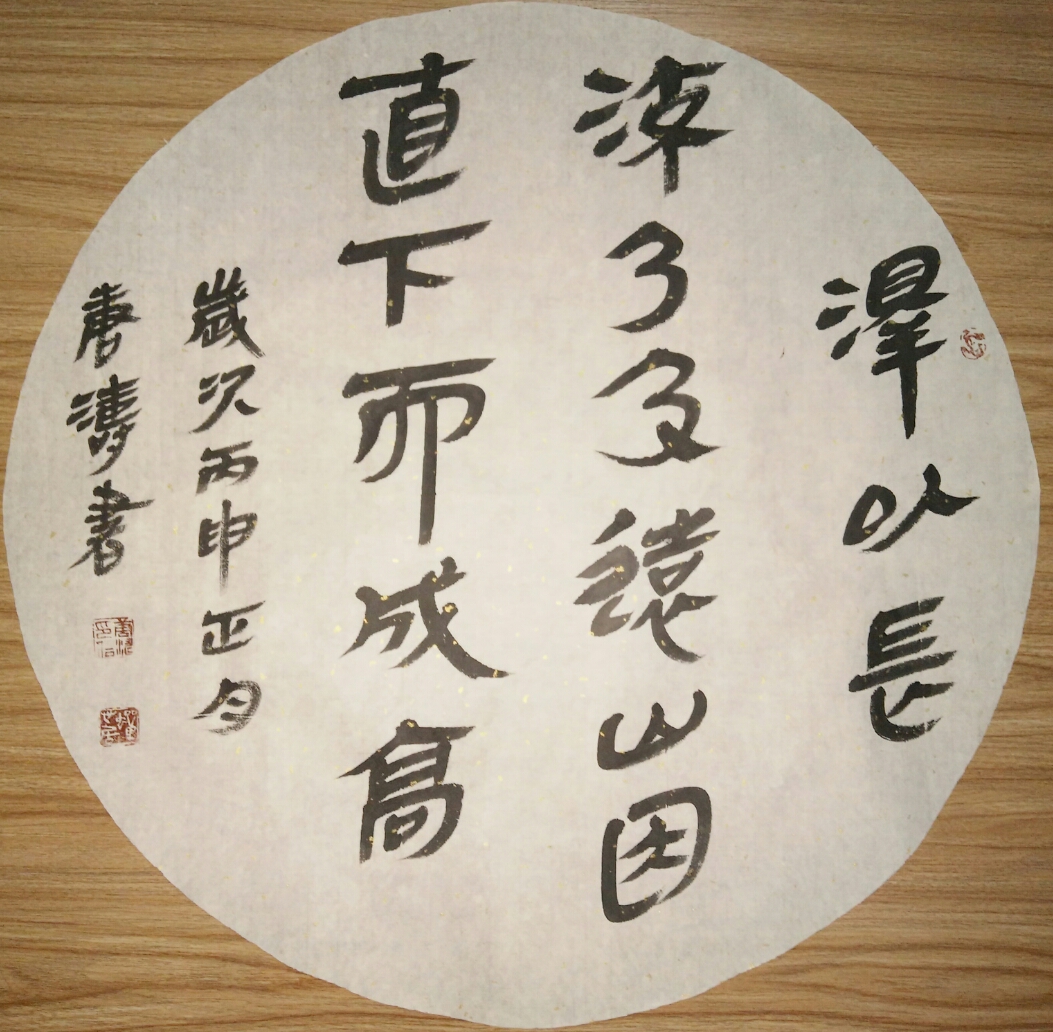 澤以長
流乃及遠山因
直下而成高
歲次丙申正月
唐濤書